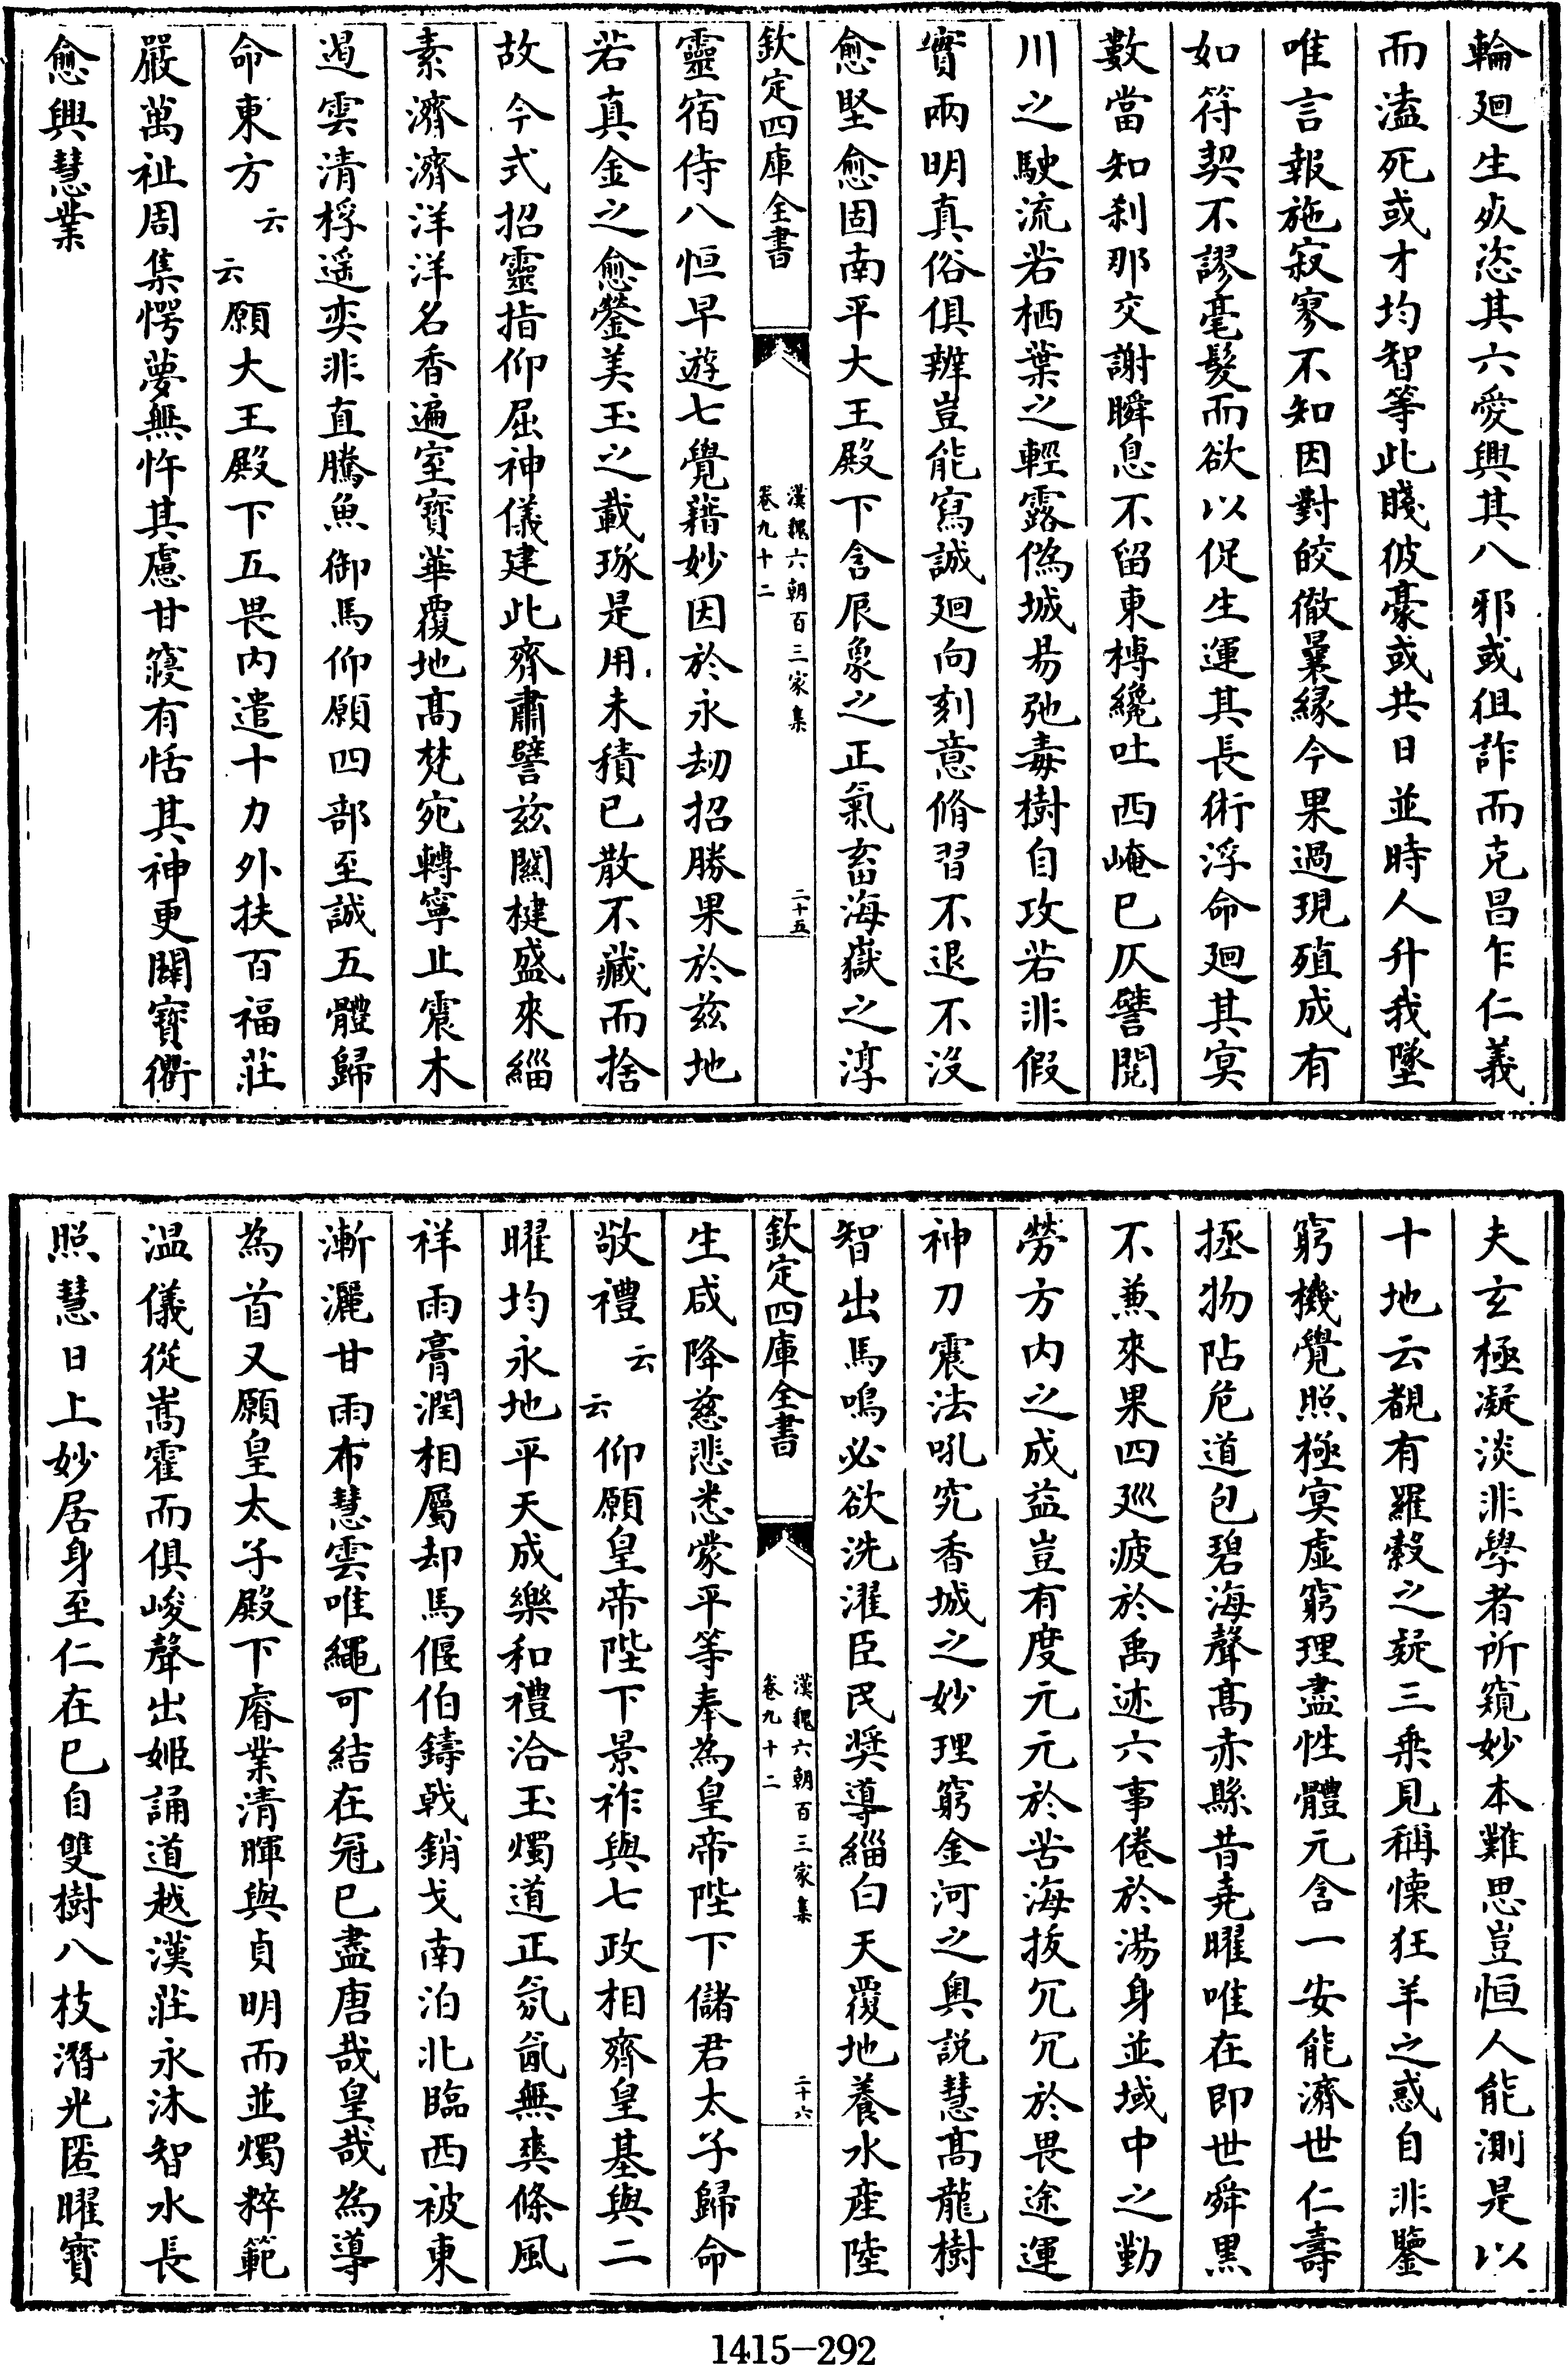 輪廻生㱐恣其六愛興其八邪或徂詐而克昌乍仁義
而溘死或才均智等此賤彼豪或共日並時人升我墜
唯言報施寂寥不知因對皎徹曩縁今果過現殖成有
如符契不謬毫髮而欲以促生運其長術浮命廻其冥
數當知刹那交謝瞬息不留東榑纔吐西崦已仄譬閱
川之駛流若栖葉之輕露偽城易弛毒樹自攻若非假
實兩明真俗俱辨豈能寫誠廻向刻意脩習不退不没
愈堅愈固南平大王殿下含辰象之正氣畜海嶽之淳
欽定四庫全書 漢魏六朝百三家集 卷九十二 二十五
靈宿侍八恒早遊七覺藉妙因於永刼招勝果於兹地
若真金之愈鎣美玉之載琢是用未積已散不藏而捨
故今式招靈指仰屈神儀建此齊肅譬兹關楗盛來緇
素濟濟洋洋名香遍室寳華覆地髙梵宛轉寧止震木
遏雲清桴遥奕非直騰魚御馬仰願四部至誠五體歸
命東方云云願大王殿下五畏内遣十力外扶百福莊
嚴萬祉周集愕夢無忤其慮甘寢有恬其神更闢寳衢
愈興慧業
夫玄極凝淡非學者所窺妙本難思豈恒人能測是以
十地云覩有羅縠之疑三乗見稱慄狂羊之惑自非鑒
窮機覺照極冥虚窮理盡性體元含一安能濟世仁壽
拯物阽危道包碧海聲髙赤縣昔堯曜唯在即世舜黒
不兼來果四廵疲於禹迹六事倦於湯身並域中之勤
勞方内之成益豈有度元元於苦海拔冗冗於畏途運
神刀震法吼究香城之妙理窮金河之奥説慧髙龍樹
智出馬鳴必欲洗濯臣民奬導緇白天覆地養水産陸
欽定四庫全書 漢魏六朝百三家集 卷九十二 二十六
生咸降慈悲悉蒙平等奉為皇帝陛下儲君太子歸命
敬禮云云仰願皇帝陛下景祚與七政相齊皇基與二
曜均永地平天成樂和禮洽玉燭道正氛氤無爽條風
祥雨膏潤相屬却馬偃伯鑄戟銷戈南洎北臨西被東
漸灑甘雨布慧雲唯繩可結在冠已盡唐哉皇哉為導
為首又願皇太子殿下睿業清暉與貞明而並燭粹範
温儀從嵩霍而俱峻聲出姬誦道越漢莊永沐智水長
照慧日上妙居身至仁在已自雙樹八枝潛光匿曜寳
1415-292